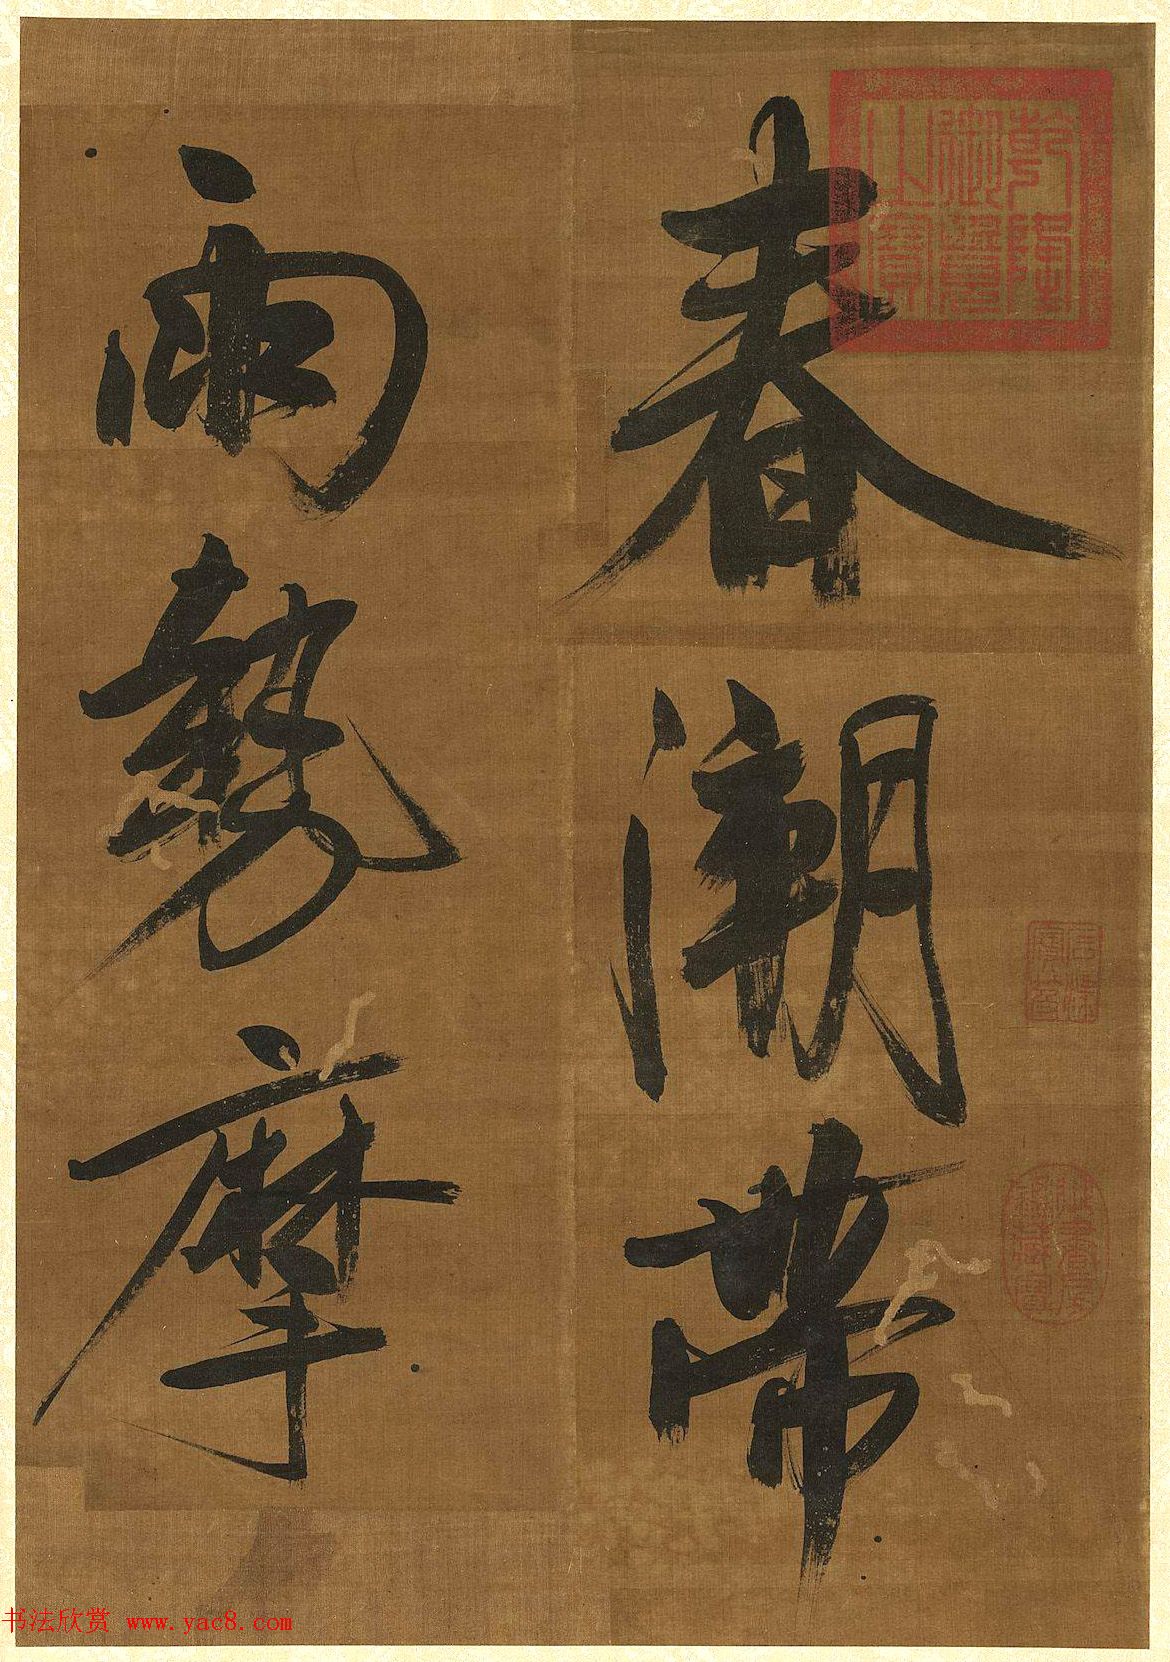 春潮帶
雨勢摩
乾隆御覽之寶
书法欣赏 www.yac8.com